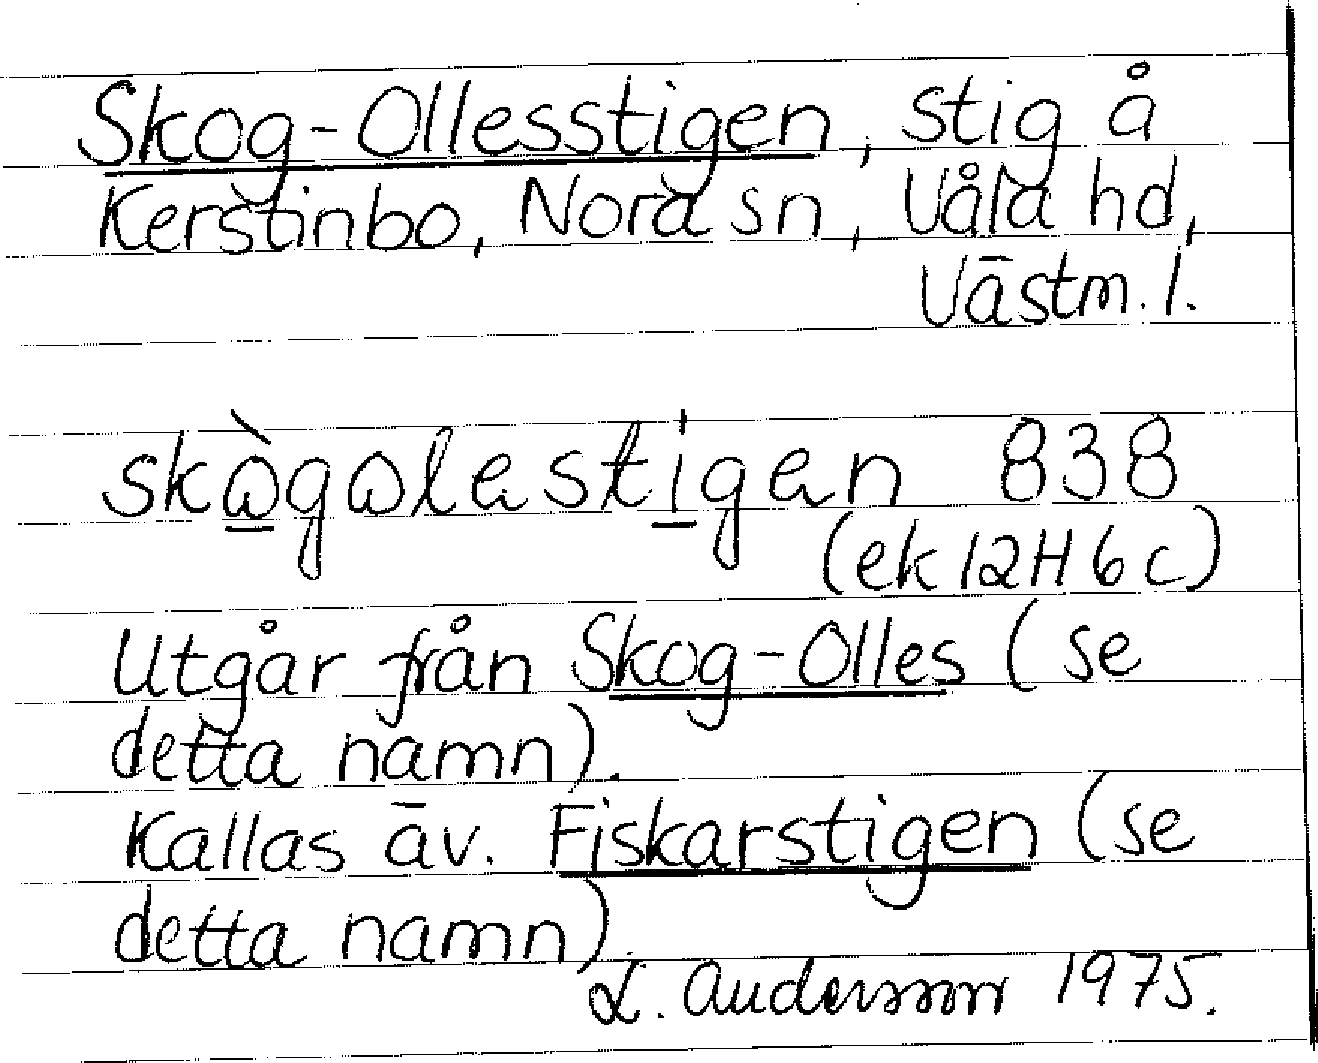 Skog-Ollesstigen, stig å
Kerstinbo, Nora sn, Våla hd,
Västm. l.
skὼgωlestigen 838
(ek 12H 6c)
Utgår från Skog-Olles (se
detta namn).
Kallas äv. Fiskarstigen (se
detta namn).
L. Andersson 1975.